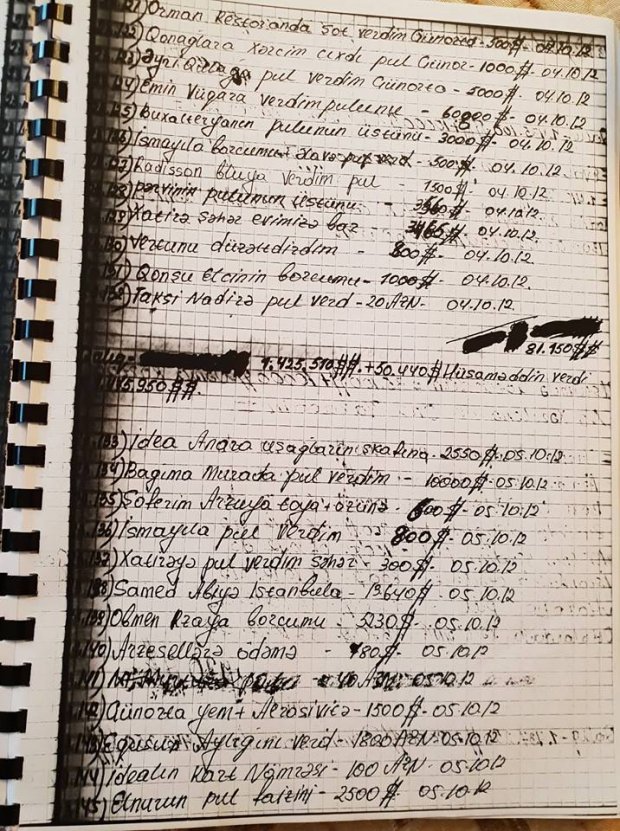 Orman Restoranda Sot verdim Günorta - 500$ - 04.10.12
Qonaqlara Xərcim cıxdı pul Günor - 1000$ - 04.10.12
Əyri pul verdim Günorta - 5000$ - 04.10.12
Emin Vüqara verdim pulunu - 60000$ - 04.10.12
Buxalteryanın pulunun üstünü - 3000$ - 04.10.12
İsmayıla borcumu - 500$ - 04.10.12
Radisson Bluya verdim pul - 1500$ - 04.10.12
128) pərvinin pulunun üstünü - 04.10.12
129) Xatirə səhər evimizə baz - 3465$ - 04.10.12
130) düzəltdirdim - 800$ - 04.10.12
131) Qonşu Etcinin borcumu - 1000$ - 04.10.12
132) Taksi Nadirə pul verd - 20 AZN - 04.10.12
81.150$$
1.425.510$$. + 50.440$ Hüsaməddin verdi
$$.
133) İdea Anara uşaqların şkafına - 2550$ - 05.10.12
134) Bagıma Murada pul verdim - 10000$ - 05.10.12
135) Şoferim Arzuya toya + özünə - 600$ - 05.10.12
136) İsmayıla pul verdim 800$ - 05.10.12
137) Xatirəyə pul verdim səhər - 300$ - 05.10.12
138) Samed Abiyə İstanbula - 13640$ - 05.10.12
139) Obmen Rzaya borcumu - 5230$ - 05.10.12
140) ödəmə - 180$ - 05.10.12
141) 40 AZN - 05.10.12
142) Günorta yem + - 1500$ - 05.10.12
143) Aylıgını verd - 1800 AZN - 05.10.12
144) idealın kart Nömrəsi - 100 AZN - 05.10.12
145) Elnurun pul faizini - 2500$ - 05.10.12